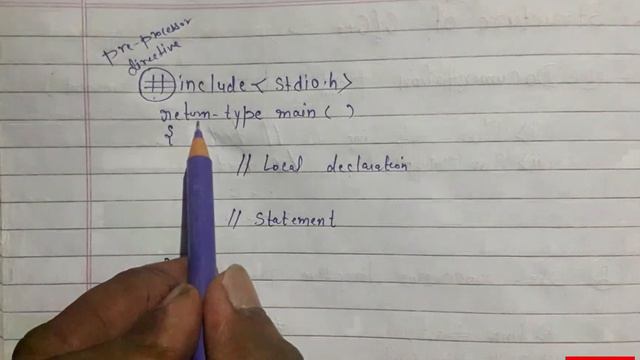 pre-processor
directive
#include< stdio.h>
return-type main( )
{
// Local declaration
// Statement